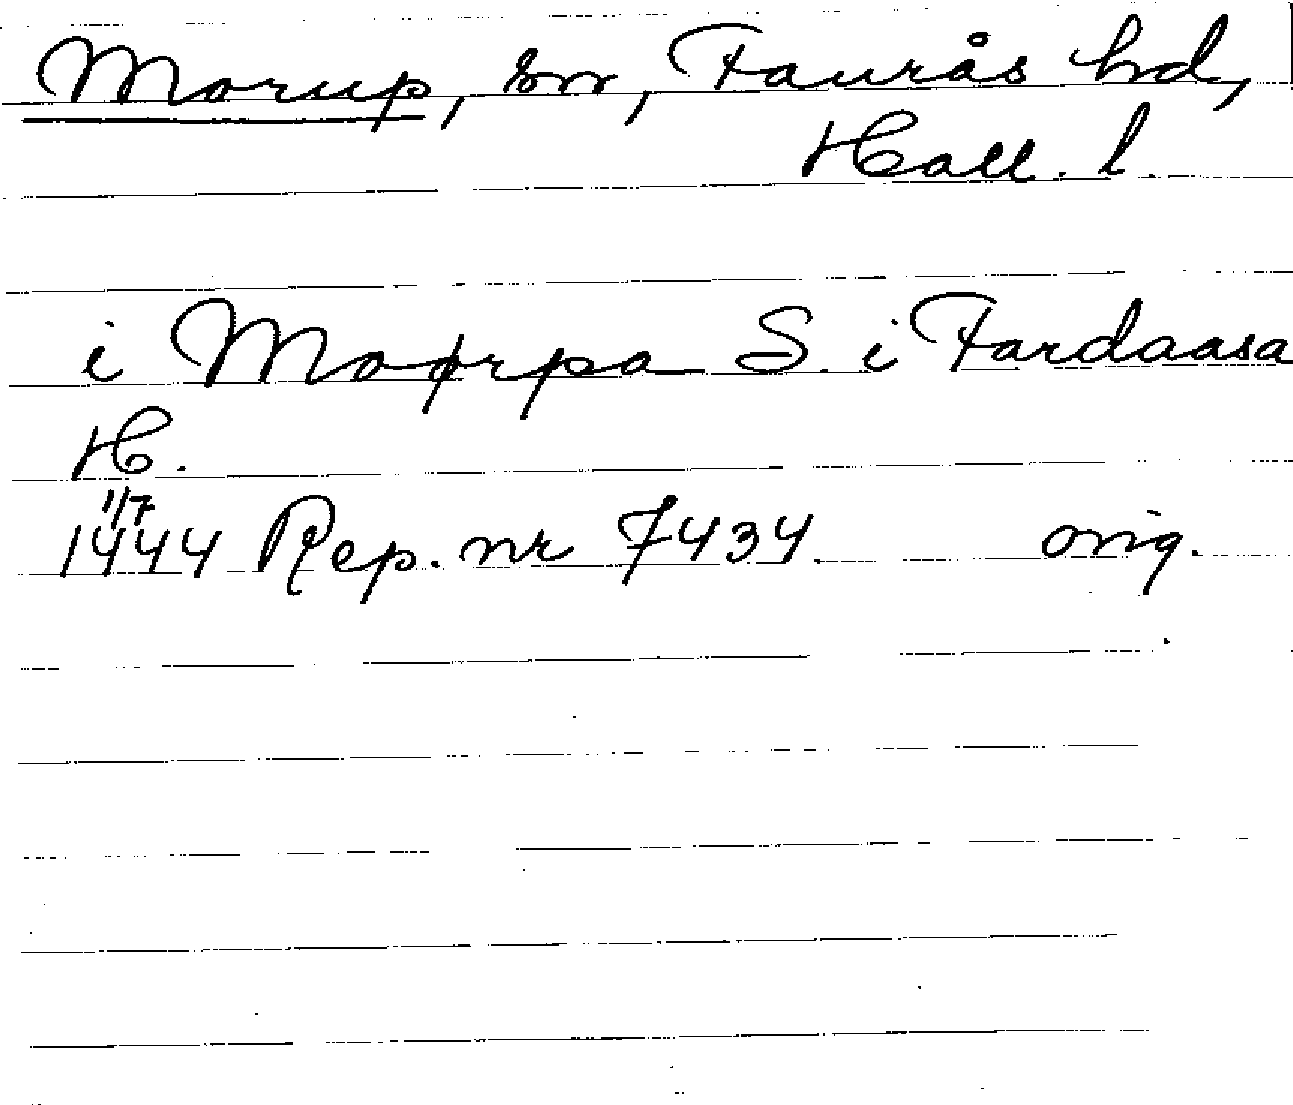 Morup, sn, Faurås hd,
Hall. l.
i Moørpa S. i Fardaasa
H.
1/7
1444 Rep. nr 7434. orig.